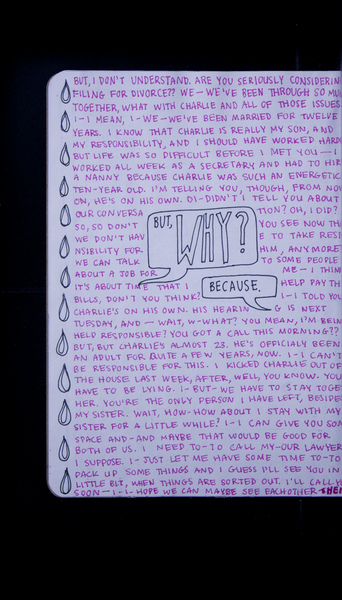 BUT, I DON'T UNDERSTAND. ARE YOU SERIOUSLY CONSIDERIN
FILING FOR DIVORCE?? WE-WE'VE BEEN THROUGH SO MU
TOGETHER, WHAT WITH CHARLIE AND ALL OF THOSE ISSUES
I-I MEAN, I-WE-WE'VE BEEN MARRIED FOR TWELVE
YEARS. I KNOW THAT CHARLIE IS REALLY MY SON, AND
MY RESPONSIBILITY, AND I SHOULD HAVE WORKED HARD
BUT LIFE WAS SO DIFFICULT BEFORE I MET YOU-I
WORKED ALL WEEK AS A SECRETARY AND HAD TO HIR
A NANNY BECAUSE CHARLIE WAS SUCH AN ENERGETIC
TEN-YEAR OLD. I'M TELLING YOU, THOUGH, FROM NO
ON, HE'S ON HIS OWN. DI-DIDN'T I TELL YOU ABOUT
OUR CONVERSA TION? OH, I DID?
SO, SO DON'T YOU SEE NOW TH
WE DON'T HAV E TO TAKE RES
NSIBILITY FOR HIM, ANYMORE
WE CAN TALK TO SOME PEOPLE
ABOUT A JOB FOR ME-I THIN
IT'S ABOUT TIME THAT I HELP PAY TH
BILLS, DON'T YOU THINK? I-I TOLD YOU
CHARLIE'S ON HIS OWN. HIS HEARIN G IS NEXT
TUESDAY, AND - WAIT, W-WHAT? YOU MEAN, I'M BEIN
HELD RESPONSIBLE? YOU GOT A CALL THIS MORNING??
BUT, BUT CHARLIE'S ALMOST 23. HE'S OFFICIALY BEEN
AN ADULT FOR QUITE A FEW YEARS, NOW. I-I CAN'T
BE RESPONSIBLE FOR THIS. I KICKED CHARLIE OUT OF
THE HOUSE LAST WEEK, AFTER, WELL, YOU KNOW. YOU
HAVE TO BE LYING. I-BUT-WE HAVE TO STAY TOGE
HER. YOU'RE THE ONLY PERSON I HAVE LEFT, BESIDE
MY SISTER. WAIT, HOW-HOW ABOUT I STAY WITH MY
SISTER FOR A LITTLE WHILE? I-I CAN GIVE YOU SOM
SPACE AND-AND MAYBE THAT WOULD BE GOOD FOR
BOTH OF US. I NEED TO-TO CALL MY-OUR LAWYER
I SUPPOSE. I-JUST LET ME HAVE SOME TIME TO-TO
PACK UP SOME THINGS AND I GUESS I'LL SEE YOU IN
LITTLE BIT, WHEN THINGS ARE SORTED OUT. I'LL CALL Y
SOON-I-I-HOPE WE CAN MAYBE SEE EACHOTHER THE
BUT, WHY?
BECAUSE.